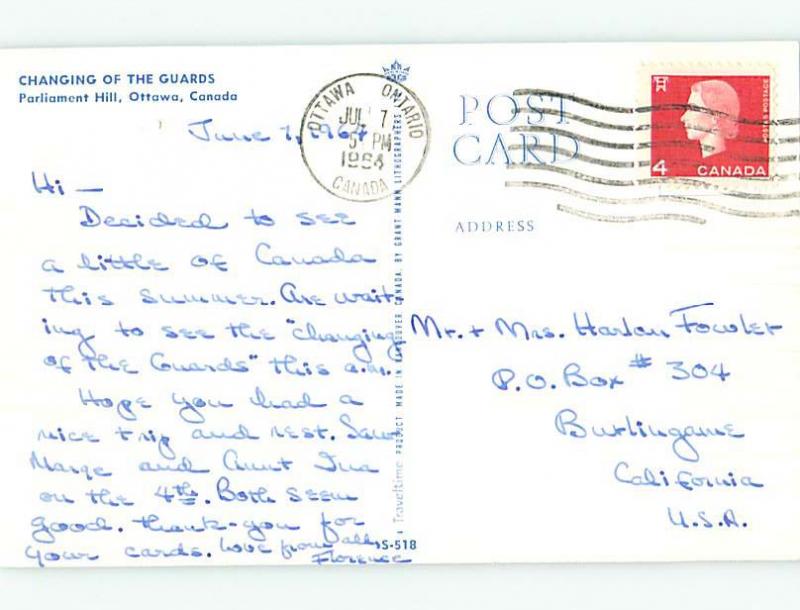 CHANGING OF THE GUARDS
Parliament Hill, Ottawa, Canada
June 7, 1964
Hi —
Decided to see
a little of Canada
this summer. Are wait-
ing to see the "Changing
of the Guards" this a.m.
Hope you had a
nice trip and rest. Saw
Marge and Aunt Ina
on the 4th. Both seem
good. Thank-you for
your cards. Love from all,
Florence
OTTAWA ONTARIO
JUL 7
5 PM
1964
CANADA
Traveltime PRODUCT MADE IN VANCOUVER, CANADA, BY GRANT MANN LITHOGRAPHERS
S-518
POST
CARD
ADDRESS
4 CANADA
POSTES POSTAGE
Mr. + Mrs. Harlan Fowler
P.O. Box # 304
Burlingame
California
U.S.A.